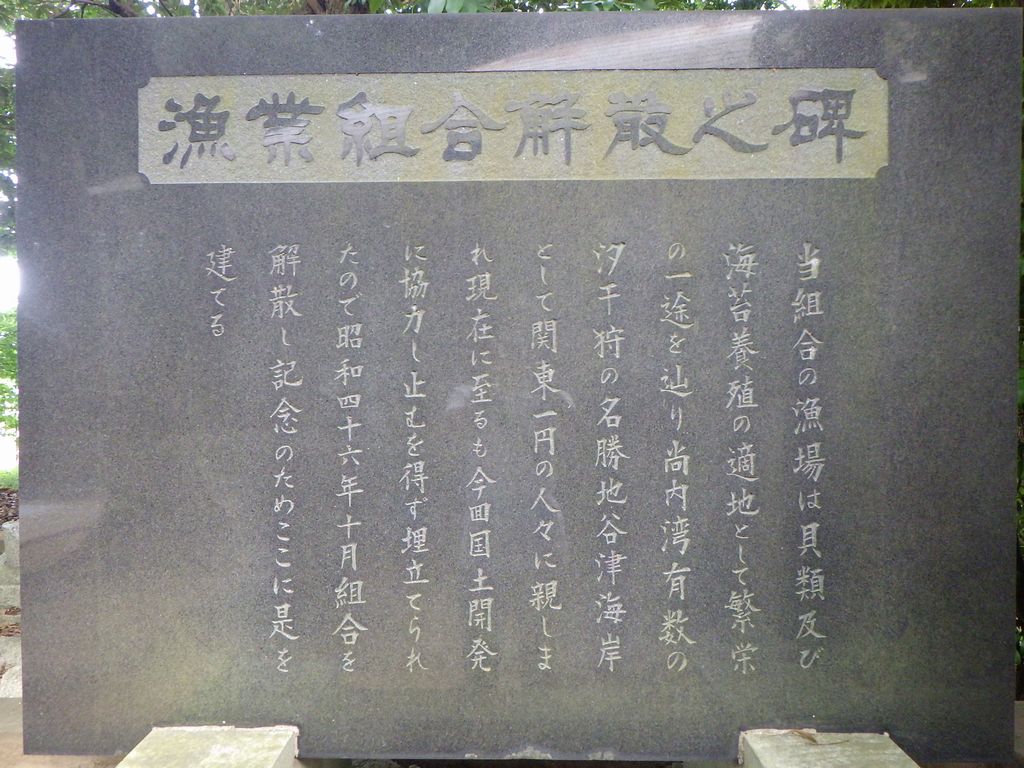 漁業組合解散之碑
当組合の漁場は貝類及び
海苔養殖の適地として繁栄
の一途を辿り尚内湾有数の
汐干狩の名勝地谷津海岸
として関東一円の人々に親しま
れ現在に至るも今回国土開発
に協力し止むを得ず埋立てられ
たので昭和四十六年十月組合を
解散し記念のためここに是を
建てる